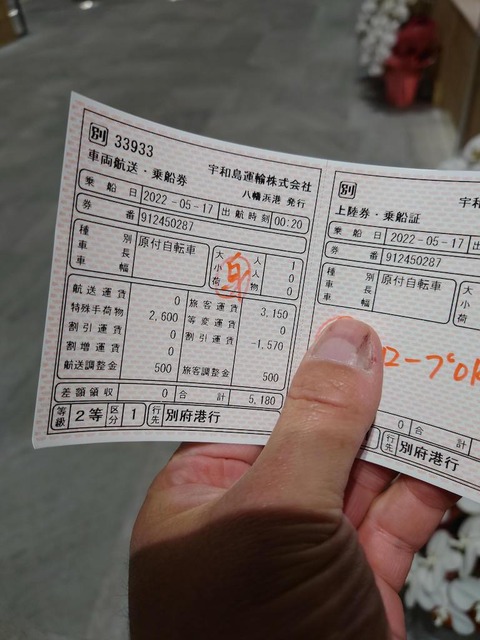 別 33933
宇和島運輸株式会社
車両航送・乗船券
八幡浜港 発行
乗船日 2022-05-17 出航時刻 00:20
券番 912450287
種別 原付自転車
車長
車幅
大人 1
小人 0
荷物 0
航送運賃 0 旅客運賃 3,150
特殊手荷物 2,600 等変運賃 0
割引運賃 0 割引運賃 -1,570
割増運賃 0
航送調整金 500 旅客調整金 500
差額領収 0 合計 5,180
等級 2等 区分 1 行先 別府港行
別
宇
上陸券・乗船証
乗船日 2022-05-17 出
券番 912450287
種別 原付自転車
車長
車幅
大
小
荷
ロープOK
0 合計
行先 別府港行